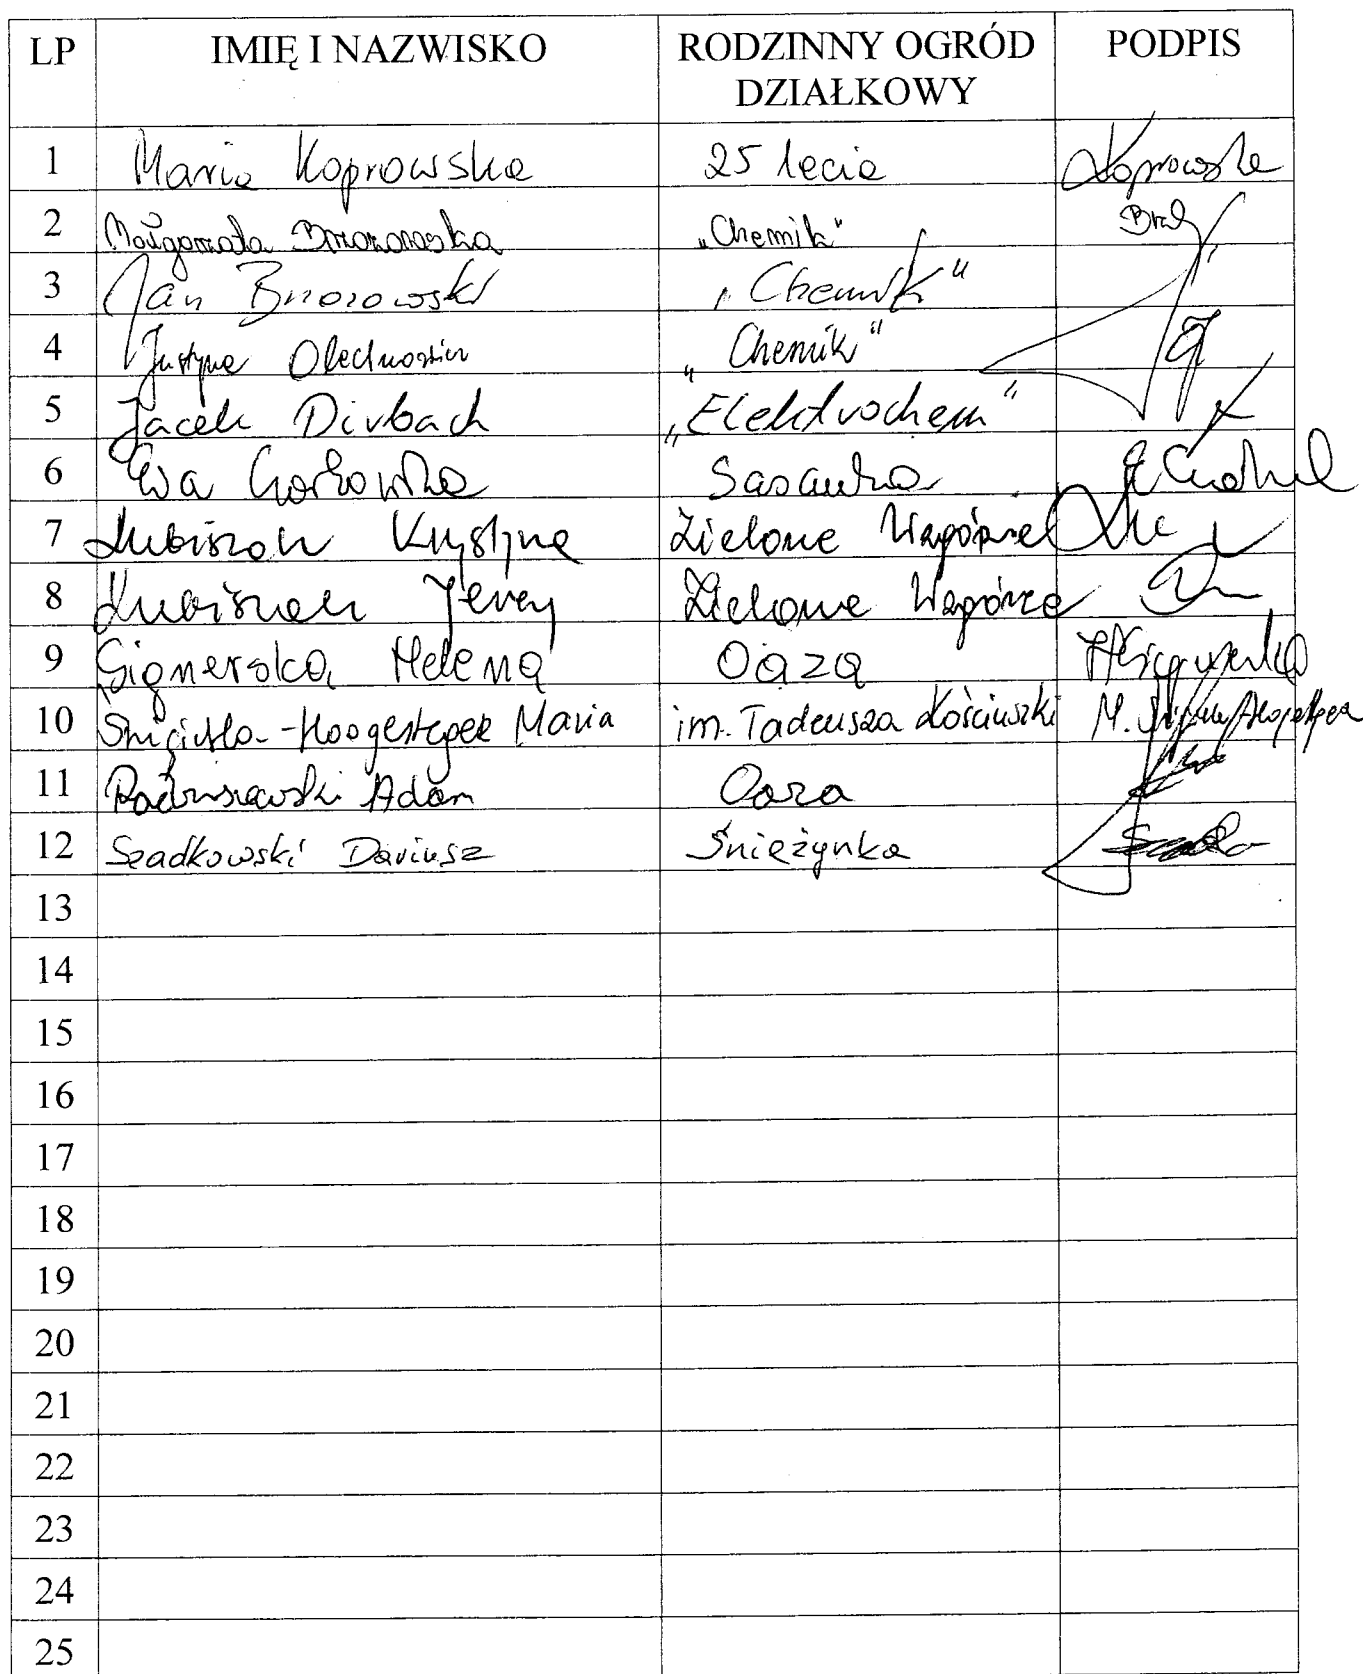 LP IMIĘ I NAZWISKO RODZINNY OGRÓD DZIAŁKOWY PODPIS
1 Maria Koprowska 25 lecia Koprowska
2 Małgorzata Brzozowska „Chemik"
3 Jan Brzozowski „Chemik"
4 Justyna Olechnowicz „Chemik"
5 Jacek Dirbach „Elektrochem"
6 Ewa Sasanka
7 Kubiszon Krystyna Zielone Wzgórze
8 Jerzy Zielone Wzgórze
9 Signerska Helena Oaza
10 Maria im. Tadeusza Kościuszki M.
11 Adam Oaza
12 Szadkowski Dariusz Śnieżynka
13
14
15
16
17
18
19
20
21
22
23
24
25